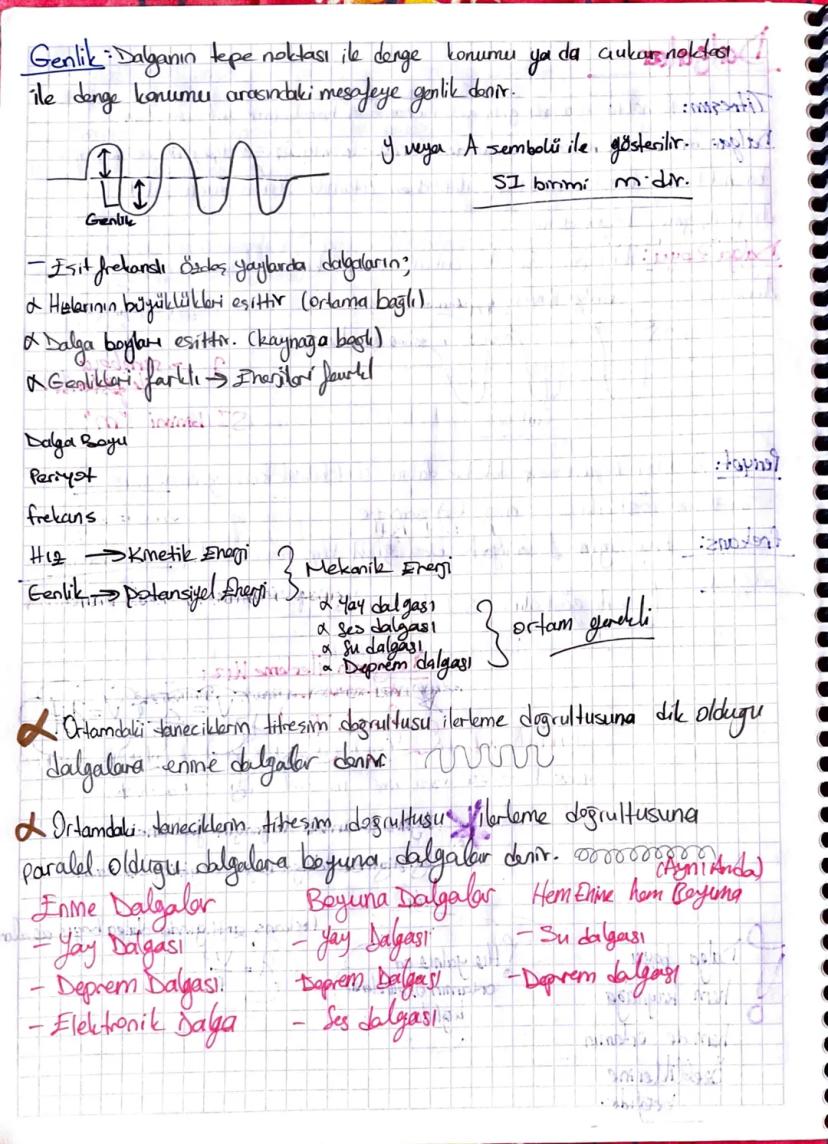 Genlik: Dalganın tepe noktası ile denge konumu ya da çukur noktası
ile denge konumu arasındaki mesafeye genlik denir.
y veya A sembolü ile gösterilir.
SI birimi m'dir.
Genlik
- Eşit frekanslı özdeş yaylarda dalgaların;
α Hızlarının büyüklükleri eşittir (ortama bağlı)
α Dalga boyları eşittir. (kaynağa bağlı)
α Genlikleri farklı → Enerjileri farklı
Dalga Boyu
Periyot
frekans
Hız → Kinetik Enerji
Genlik → potansiyel Enerji
Mekanik Enerji
α Yay dalgası
α Ses dalgası
α Su dalgası
α Deprem dalgası
ortam gerekli
α Ortamdaki taneciklerin titreşim doğrultusu ilerleme doğrultusuna dik olduğu
dalgalara enine dalgalar denir.
α Ortamdaki taneciklerin titreşim doğrultusu ilerleme doğrultusuna
paralel olduğu dalgalara boyuna dalgalar denir.
(Aynı Anda)
Enine Dalgalar
- Yay Dalgası
- Deprem Dalgası
- Elektronik Dalga
Boyuna Dalgalar
- Yay Dalgası
- Deprem Dalgası
- Ses dalgası
Hem Enine hem Boyuna
- Su dalgası
- Deprem dalgası